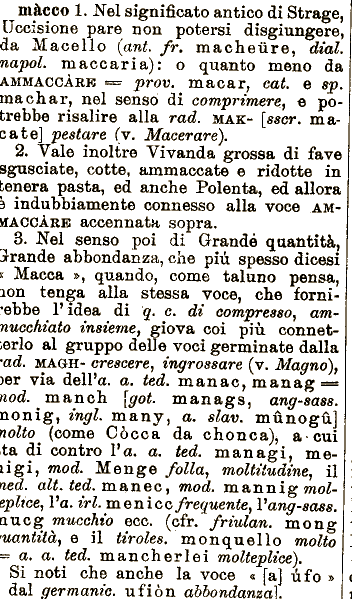 màcco 1. Nel significato antico di Strage,
Uccisione pare non potersi disgiungere,
da Macello (ant. fr. macheüre, dial.
napol. maccaria): o quanto meno da
AMMACCÀRE = prov. macar, cat. e sp.
machar, nel senso di comprimere, e po-
trebbe risalire alla rad. MAK- [sscr. ma-
cate] pestare (v. Macerare).
2. Vale inoltre Vivanda grossa di fave
sgusciate, cotte, ammaccate e ridotte in
tenera pasta, ed anche Polenta, ed allora
è indubbiamente connesso alla voce AM-
MACCÀRE accennata sopra.
3. Nel senso poi di Grande quantità,
Grande abbondanza, che più spesso dicesi
« Macca », quando, come taluno pensa,
non tenga alla stessa voce, che forni-
rebbe l'idea di q. c. di compresso, am-
mucchiato insieme, giova coi più connet-
terlo al gruppo delle voci germinate dalla
rad. MAGH- crescere, ingrossare (v. Magno),
per via dell'a. a. ted. manac, manag =
mod. manch [got. manags, ang-sass.
monig, ingl. many, a. slav. mûnogû]
molto (come Còcca da chonca), a cui
sta di contro l'a. a. ted. managi, me-
nigi, mod. Menge folla, moltitudine, il
med. alt. ted. manec, mod. mannig mol-
teplice, l'a. irl. menicc frequente, l'ang-sass.
mucg mucchio ecc. (cfr. friulan. mong
quantità, e il tiroles. monquello molto
= a. a. ted. mancherlei molteplice).
Si noti che anche la voce « [a] úfo »
dal germanic. ufiòn abbondanza].